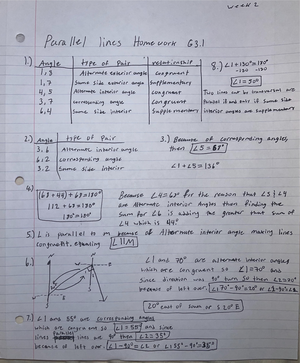 week 2
Parallel lines Homework G3.1
1.) Angle type of Pair relationship
1,3 Alternate exterior angle congruent
1,7 Same side exterior angle Supplementary
4,5 Alternate interior angle Congruent
3,7 corresponding angle Congruent
6,4 Same side interior Supplementary
8.) ∠1+130°=180°
-130 -130
∠1=50°
Two lines cut by transversal are
Parallel if and only if Same side
interior angles are supplementary
2.) Angle type of Pair
3,6 Alternate interior angle
6,2 corresponding angle
3,2 Same side interior
3.) Because of corresponding angles,
then ∠5=68°
∠1+∠5=136°
4.) (68+44)+68=180°
112+68=180°
180°=180°
Because ∠4=68° for the reason that ∠3 & ∠4
are Alternate interior Angles then finding the
sum for ∠6 is adding the greater than sum of
∠4 which is 44°
5.) L is parallel to m because of Alternate interior angle making lines
congruent, equaling L||M
6.) ∠1 and 70° are alternate interior angles
which are congruent so ∠1=70° and
since direction was 90° turn so then ∠2=20°
because of left over.
20° east of south or S 20° E
7.) ∠1 and 55° are corresponding angles
which are congruent so ∠1=55° and since
lines are 90° then ∠2=35°
because of left over.